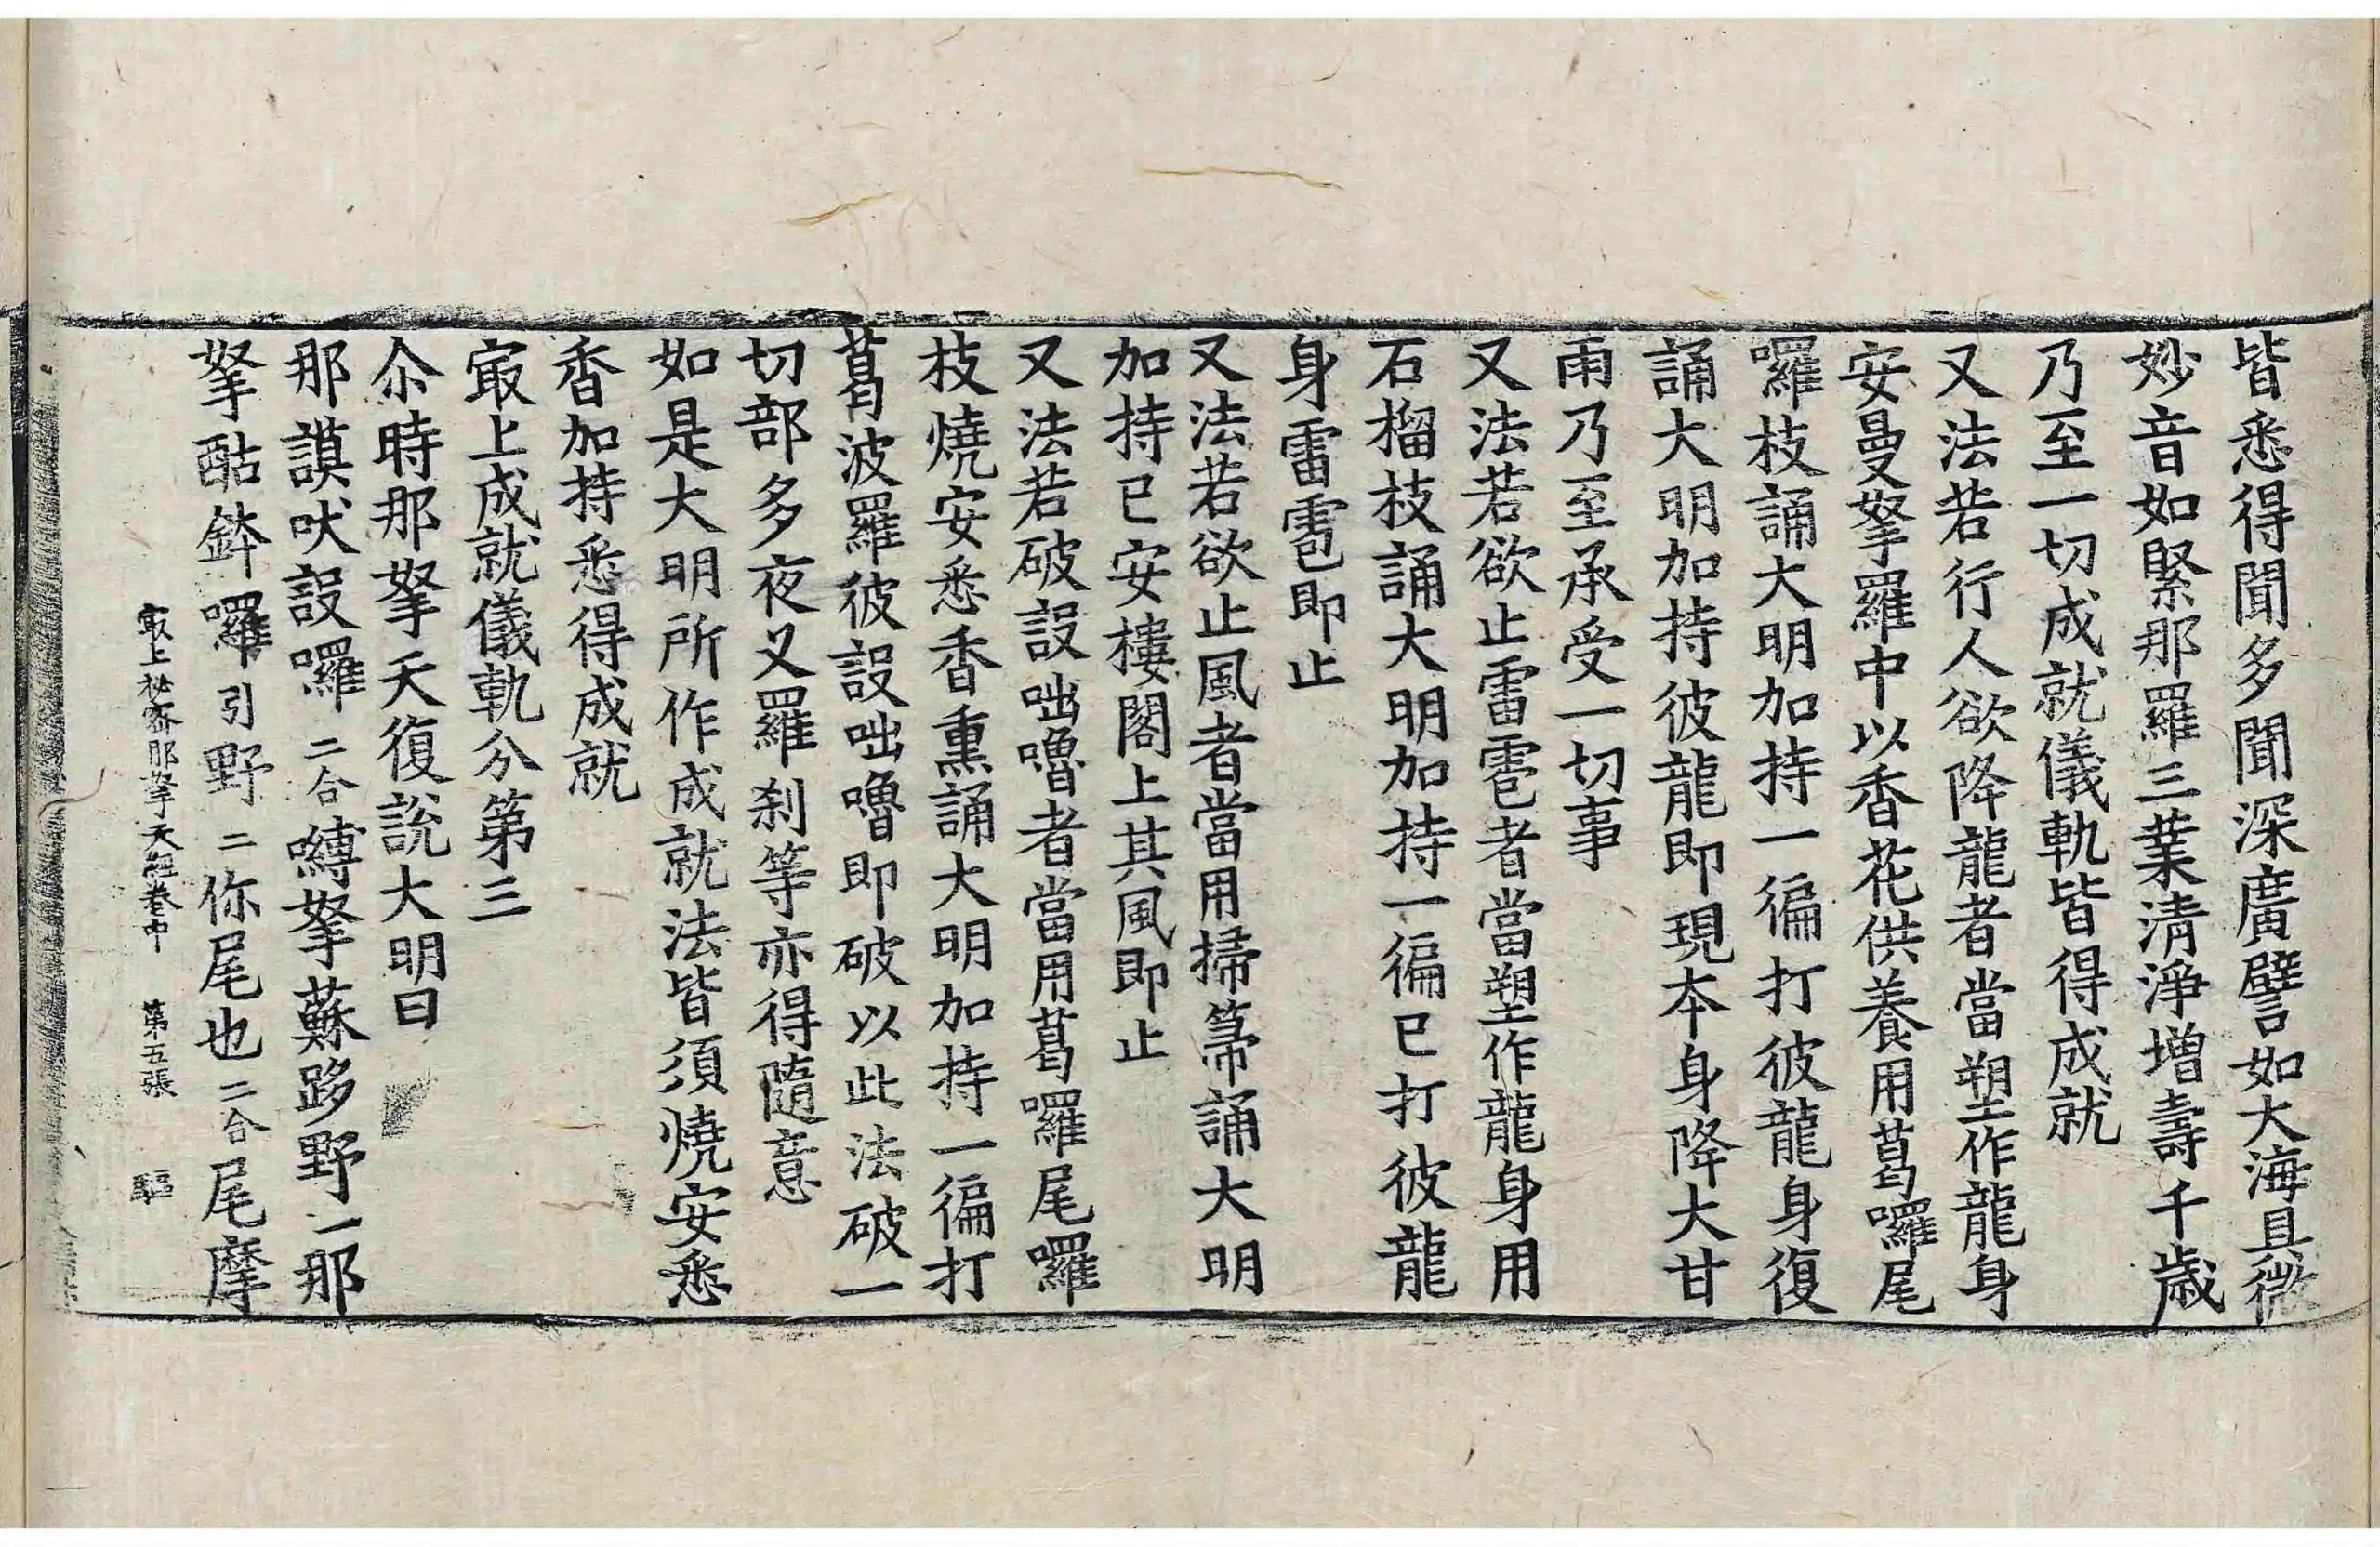 皆悉得聞多聞深廣譬如大海具微
妙音如緊那羅三業清淨增壽千歲
乃至一切成就儀軌皆得成就
又法若行人欲降龍者當塑作龍身
安曼拏羅中以香花供養用葛囉尾
囉枝誦大明加持一徧打彼龍身復
誦大明加持彼龍即現本身降大甘
雨乃至承受一切事
又法若欲止雷雹者當塑作龍身用
石榴枝誦大明加持一徧已打彼龍
身雷雹即止
又法若欲止風者當用掃箒誦大明
加持已安樓閣上其風即止
又法若破設咄嚕者當用葛囉尾囉
枝燒安悉香熏誦大明加持一徧打
葛波羅彼設咄嚕即破以此法破一
切部多夜叉羅刹等亦得隨意
如是大明所作成就法皆須燒安悉
香加持悉得成就
㝡上成就儀軌分第三
尒時那拏天復說大明曰
那謨吠設囉二合嚩拏蘇跢野一那
拏酤鉢囉引野二你尾也二合尾摩
㝡上秘密那拏天經卷中 第五張 驅